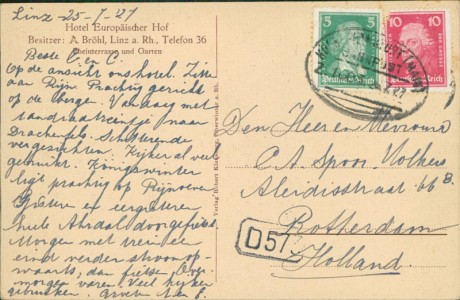 Linz 25-7-27
Hotel Europäischer Hof
Besitzer: A. Bröhl, Linz a. Rh., Telefon 36
Rheinterrasse und Garten
Beste C en C.
Op de ansicht ons hotel. Zitten
aan Rijn. Prachtig gezicht
op de bergen. Vandaag met
tandraattreintje naar
Drachenfels. Schitterende
vergezichten. Kijker al veel
gebruikt. Königswinter
ligt prachtig op Rijnoever
heele Ahrdal doorgefietst.
Morgen met trein
eind verder stroomop-
waarts, dan fietsen. Over-
morgen varen. Veel kijker
gebruiken.
5
5
Deutsches Reich
10
10
Deutsches Reich
Den Heer en Mevrouw
Spoor Volkers
Aleidisstraat 66 B.
Rotterdam
Holland.
D57